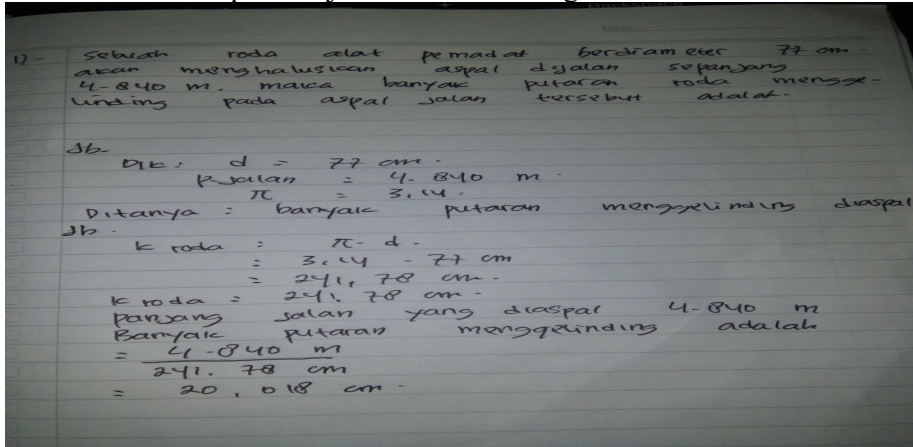 1) - Sebuah roda alat pemadat berdiameter 77 cm.
akan menghaluskan aspal dijalan sepanjang
4.840 m. maka banyak putaran roda mengge-
linding pada aspal jalan tersebut adalah.
Jb.
Dik : d = 77 cm.
P jalan = 4.840 m.
π = 3,14.
Ditanya : banyak putaran menggelinding diaspal
Jb.
k roda : π . d .
= 3,14 . 77 cm
= 241,78 cm.
K roda = 241.78 cm.
Panjang jalan yang diaspal 4.840 m
Banyak putaran menggelinding adalah
= 4.840 m
241.78 cm
= 20,018 cm.